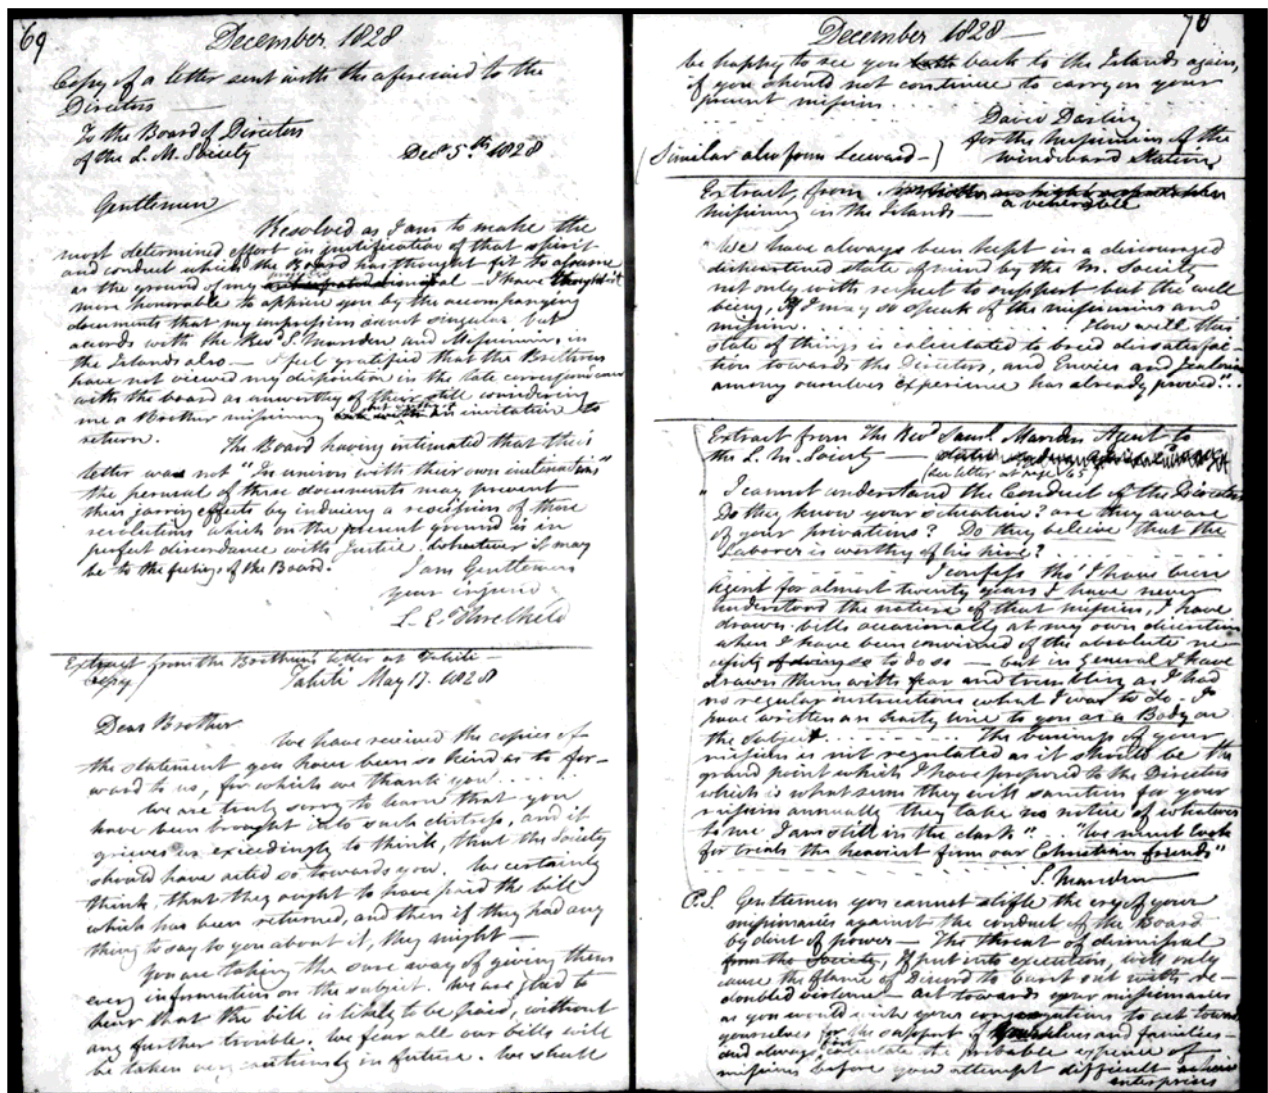 69
December 1828
Copy of a letter sent with the aforesaid to the
Directors
To the Board of Directors
of the L. M. Society
Decr 5th 1828
Gentlemen
Resolved as I am to make the
most determined effort in justification of that spirit
and conduct which the Board has thought fit to assume
as the ground of my projected dismissal – I have thought it
more honorable to apprise you by the accompanying
documents that my impression is not singular but
accords with the Revd S. Marsden and Missionaries in
the Islands also – I feel gratified that the Brethren
have not viewed my disposition in the late correspondence
with the board as unworthy of their still considering
me a Brother missionary invitation to
return.
The Board having intimated that their
letter was not "In unison with their own inclinations"
the perusal of these documents may prevent
their jarring effects by inducing a rescission of those
resolutions which on the present ground is in
perfect discordance with Justice. Whatever it may
be to the feelings of the Board.
I am Gentlemen
your injured
L. E. Threlkeld
Extract from the Brethren's letter at Tahiti –
Copy
Tahiti May 17. 1828
Dear Brother
We have received the copies of
the statement you have been so kind as to for-
ward to us, for which we thank you . . . . .
We are truly sorry to learn that you
have been brought into such distress, and it
grieves us exceedingly to think, that the Society
should have acted so towards you. We certainly
think, that they ought to have paid the bill
which has been returned, and then if they had any
thing to say to you about it, they might –
You are taking the sure way of giving them
every information on the subject. We are glad to
hear that the bill is likely to be paid, without
any further trouble. We fear all our bills will
be taken very cautiously in future. We shall
70
December 1828 –
be happy to see you back to the Islands again,
if you should not continue to carry on your
present mission. . . .
David Darling
for the Missionaries of the
Windward Station
(Similar also from Leeward –)
Extract, from a venerable
Missionary in the Islands –
"We have always been kept in a discouraged
disheartened state of mind by the M. Society
not only with respect to support but the well
being, If I may so speak of the missionaries and
mission. . . . . How well this
state of things is calculated to breed dissatisfac-
tion towards the Directors, and Envies and Jealousies
among ourselves Experience has already proved" . .
Extract from The Revd Saml. Marsden Agent to
the L. M. Society –
(See letter at page 65)
" I cannot understand the Conduct of the Directors
Do they know your situation? are they aware
of your privations? Do they beleive that the
Laborer is worthy of his hire? . . . . .
I confess tho' I have been
Agent for almost twenty years I have never
understood the nature of that mission, I have
drawn bills occasionally at my own discretion
when I have been convinced of the absolute ne-
cessity of doing so to do so – but in general I have
drawn them with fear and trembling as I had
no regular instructions what I was to do. I
have written an hasty line to you as a Body on
the Subject. . . . . The business of your
mission is not regulated as it should be the
grand point which I have proposed to the Directors
which is what sum they will sanction for your
mission annually they take no notice of whatever
to me I am still in the dark" . . . "We must look
for trials the heaviest from our Christian friends"
S. Marsden
P.S. Gentlemen you cannot stifle the cry of your
missionaries against the conduct of the Board
by dint of power – The threat of dismissal
from the Society, If put into execution, will only
cause the flame of Discord to burst out with re-
doubled violence – act towards your missionaries
as you would wish your congregations to act towards
yourselves for the support of and families
and always calculate the probable expence of
missions before you attempt difficult
enterprises